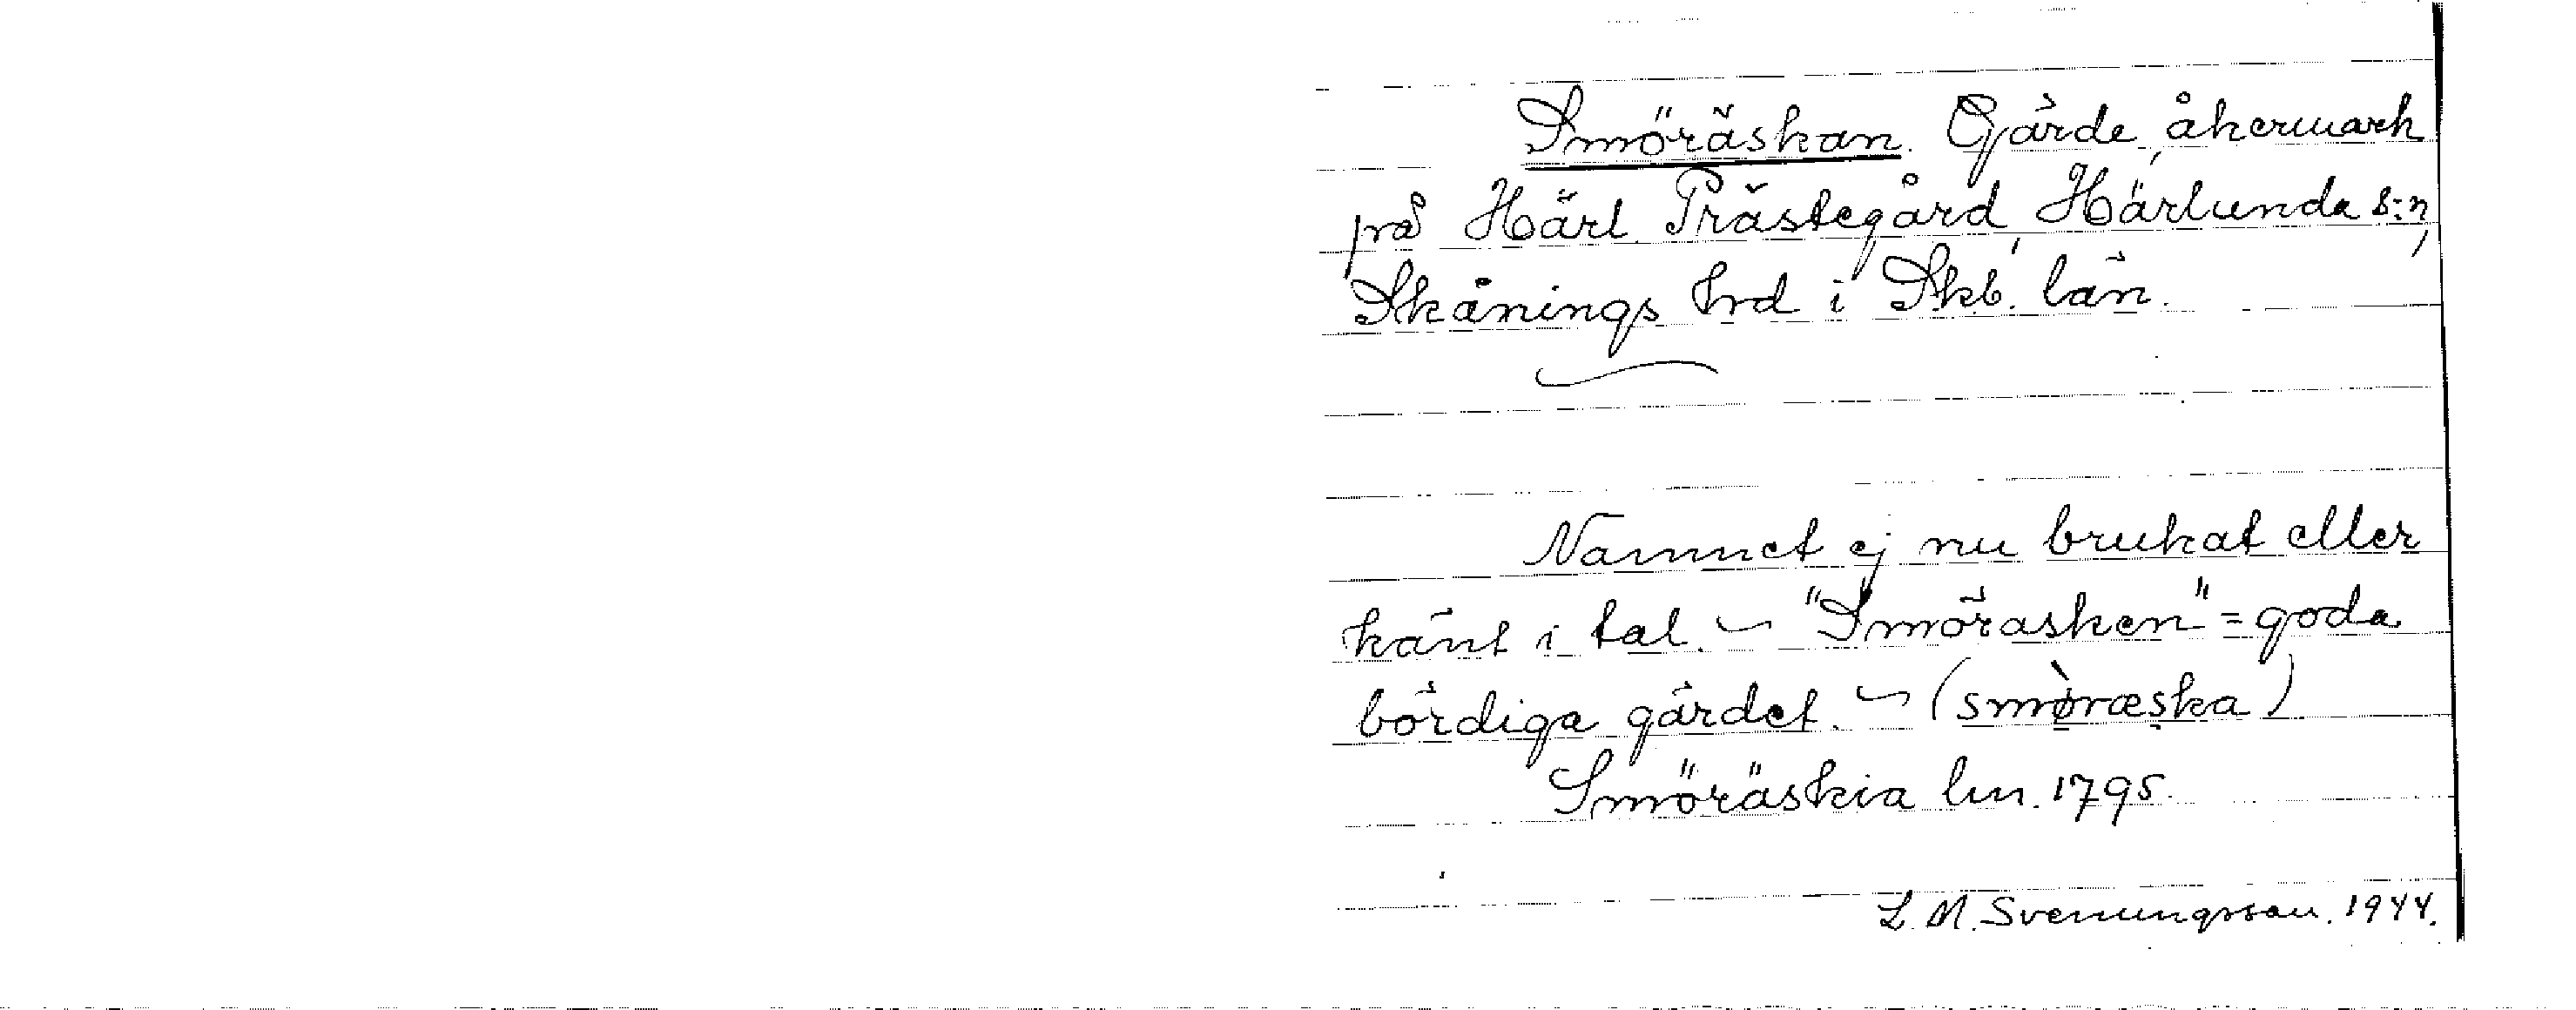 Smöräskan. Gärde, åkermark
på Härl. Prästegård, Härlunda s:n,
Skånings hrd i Skb. län.
Namnet ej nu brukat eller
känt i tal. ~ "Smörasken" = goda
bördiga gärdet. ~ (smøræska)
Smöräskia lm. 1795.
L. M. Svenungsson. 1944.